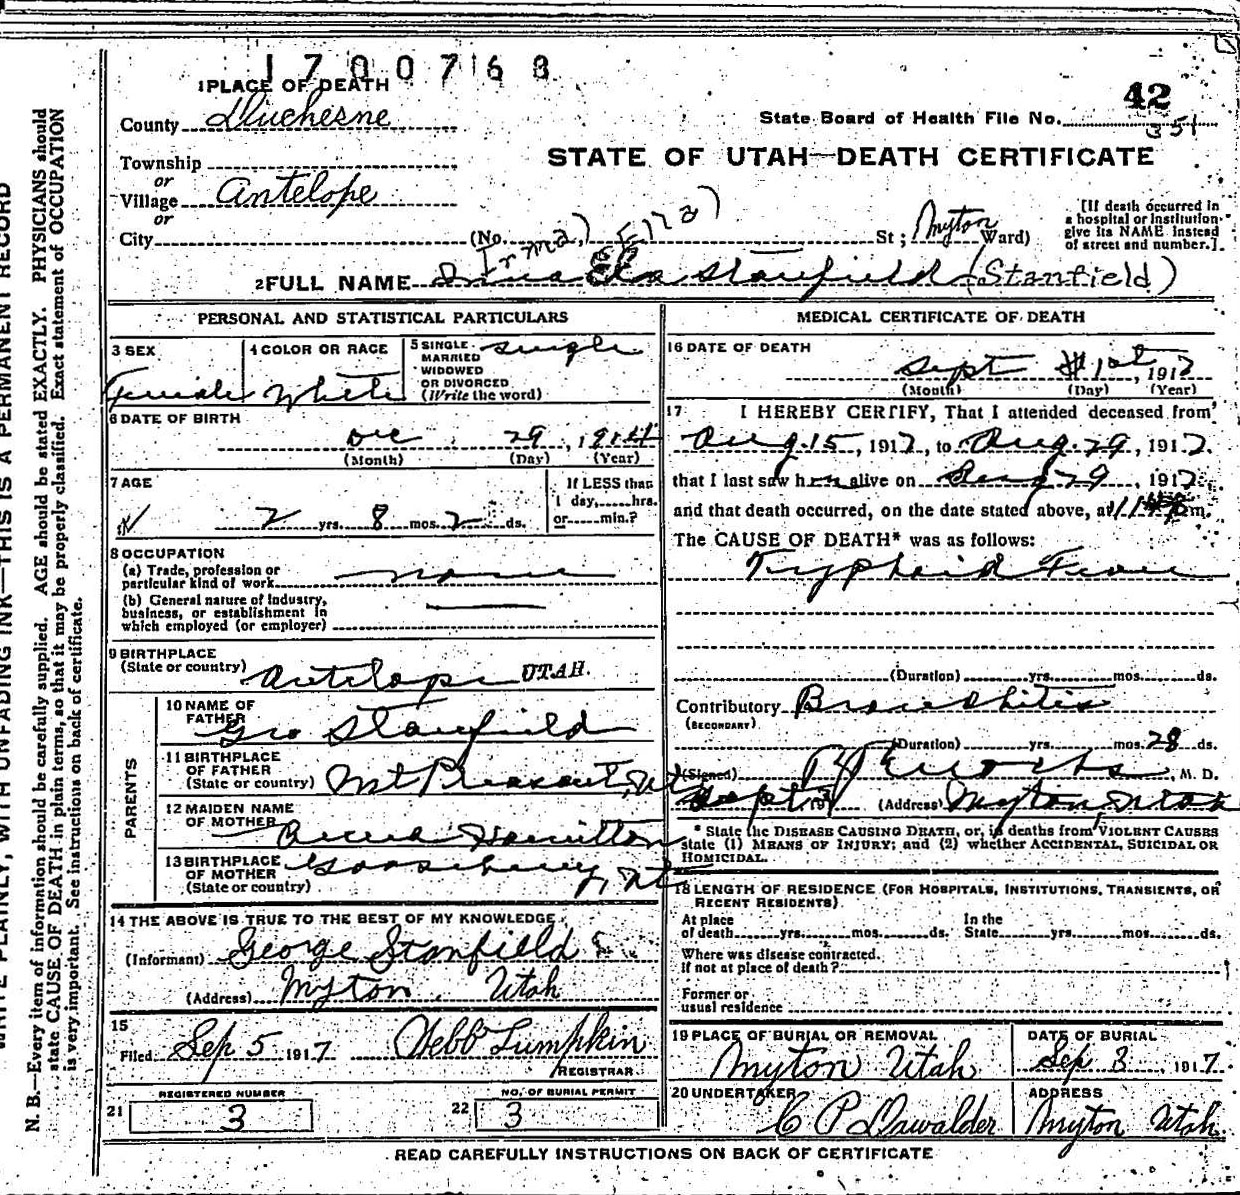 1700768
1 PLACE OF DEATH
County Duchesne
42
State Board of Health File No. 351
Township
or
Village Antelope
or
City (No. St; Myton Ward)
STATE OF UTAH—DEATH CERTIFICATE
[If death occurred in
a hospital or institution
give its NAME instead
of street and number.]
(Irma) (Ella)
2 FULL NAME Irma Ella Stanfield (Stanfield)
PERSONAL AND STATISTICAL PARTICULARS
3 SEX
Female
4 COLOR OR RACE
White
5 SINGLE
MARRIED
WIDOWED
OR DIVORCED
(Write the word)
single
6 DATE OF BIRTH
Dec 29, 1914
(Month) (Day) (Year)
7 AGE
2 yrs. 8 mos. 2 ds.
If LESS than
1 day,......hrs.
or......min.?
8 OCCUPATION
(a) Trade, profession or
particular kind of work none
(b) General nature of industry,
business, or establishment in
which employed (or employer)
9 BIRTHPLACE
(State or country) Antelope UTAH.
PARENTS
10 NAME OF
FATHER
Geo Stanfield
11 BIRTHPLACE
OF FATHER
(State or country) Mt Pleasant, Ut
12 MAIDEN NAME
OF MOTHER
Hamilton
13 BIRTHPLACE
OF MOTHER
(State or country)
Gooseberry, Ut
14 THE ABOVE IS TRUE TO THE BEST OF MY KNOWLEDGE
(Informant) George Stanfield
(Address) Myton Utah
15
Filed Sep 5 1917 Webb Lumpkin
REGISTRAR
REGISTERED NUMBER
21 3
NO. OF BURIAL PERMIT
22 3
MEDICAL CERTIFICATE OF DEATH
16 DATE OF DEATH
Sept 1st, 1917
(Month) (Day) (Year)
17 I HEREBY CERTIFY, That I attended deceased from
Aug. 15, 1917, to Aug. 29, 1917.
that I last saw her alive on Aug 29, 1917.
and that death occurred, on the date stated above, at 11 m.
The CAUSE OF DEATH* was as follows:
Typhoid Fever
(Duration) yrs. mos. ds.
Contributory Bronchitis
(SECONDARY)
(Duration) yrs. mos. 28 ds.
(Signed) M. D.
Sept 191 (Address) Myton, Utah
* State the DISEASE CAUSING DEATH, or, in deaths from VIOLENT CAUSES
state (1) MEANS OF INJURY; and (2) whether ACCIDENTAL, SUICIDAL OR
HOMICIDAL.
18 LENGTH OF RESIDENCE (FOR HOSPITALS, INSTITUTIONS, TRANSIENTS, OR
RECENT RESIDENTS)
At place
of death yrs. mos. ds.
In the
State yrs. mos. ds.
Where was disease contracted.
if not at place of death?
Former or
usual residence
19 PLACE OF BURIAL OR REMOVAL
Myton Utah
DATE OF BURIAL
Sep 3, 1917
20 UNDERTAKER
C P Oswalder
ADDRESS
Myton Utah.
READ CAREFULLY INSTRUCTIONS ON BACK OF CERTIFICATE
WRITE PLAINLY, WITH UNFADING INK—THIS IS A PERMANENT RECORD
N. B.—Every item of information should be carefully supplied. AGE should be stated EXACTLY. PHYSICIANS should
state CAUSE OF DEATH in plain terms, so that it may be properly classified. Exact statement of OCCUPATION
is very important. See instructions on back of certificate.